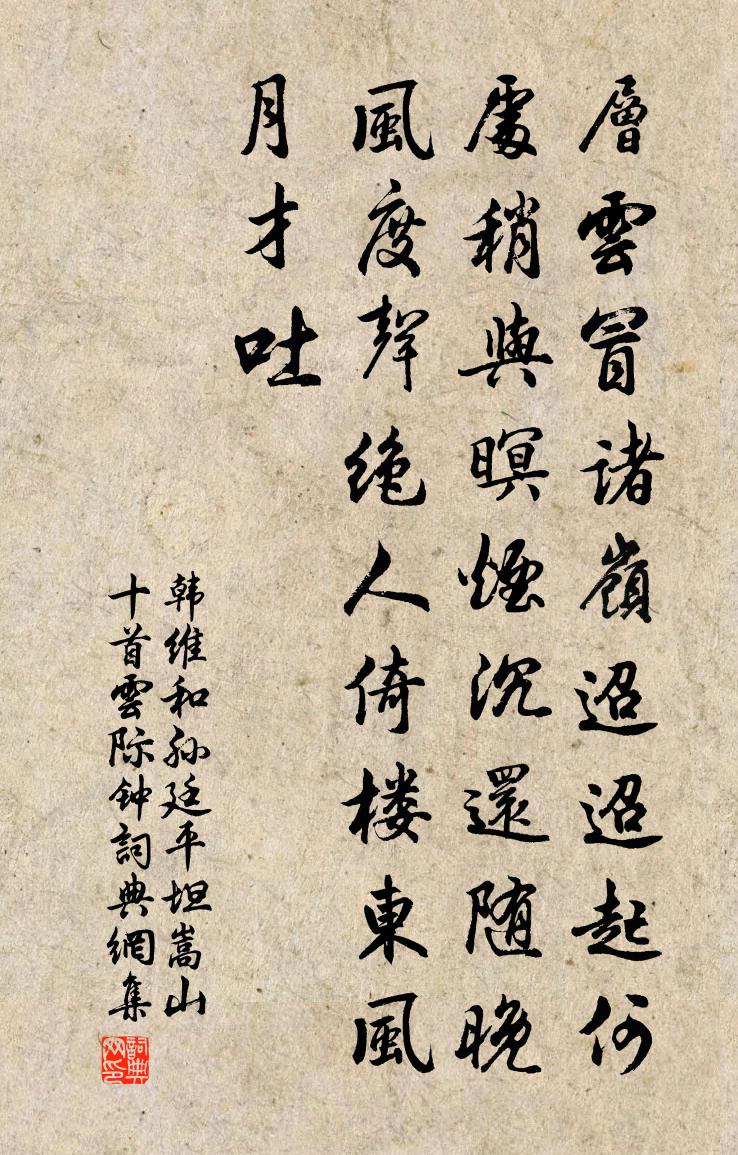 層雲冒諸嶺迢迢起何
處稍與暝煙沉還随晚
風度聲絶人倚楼東風
月才吐
韩维和孙廷平坦嵩山
十首雲际钟詞典網集
詞典
网印